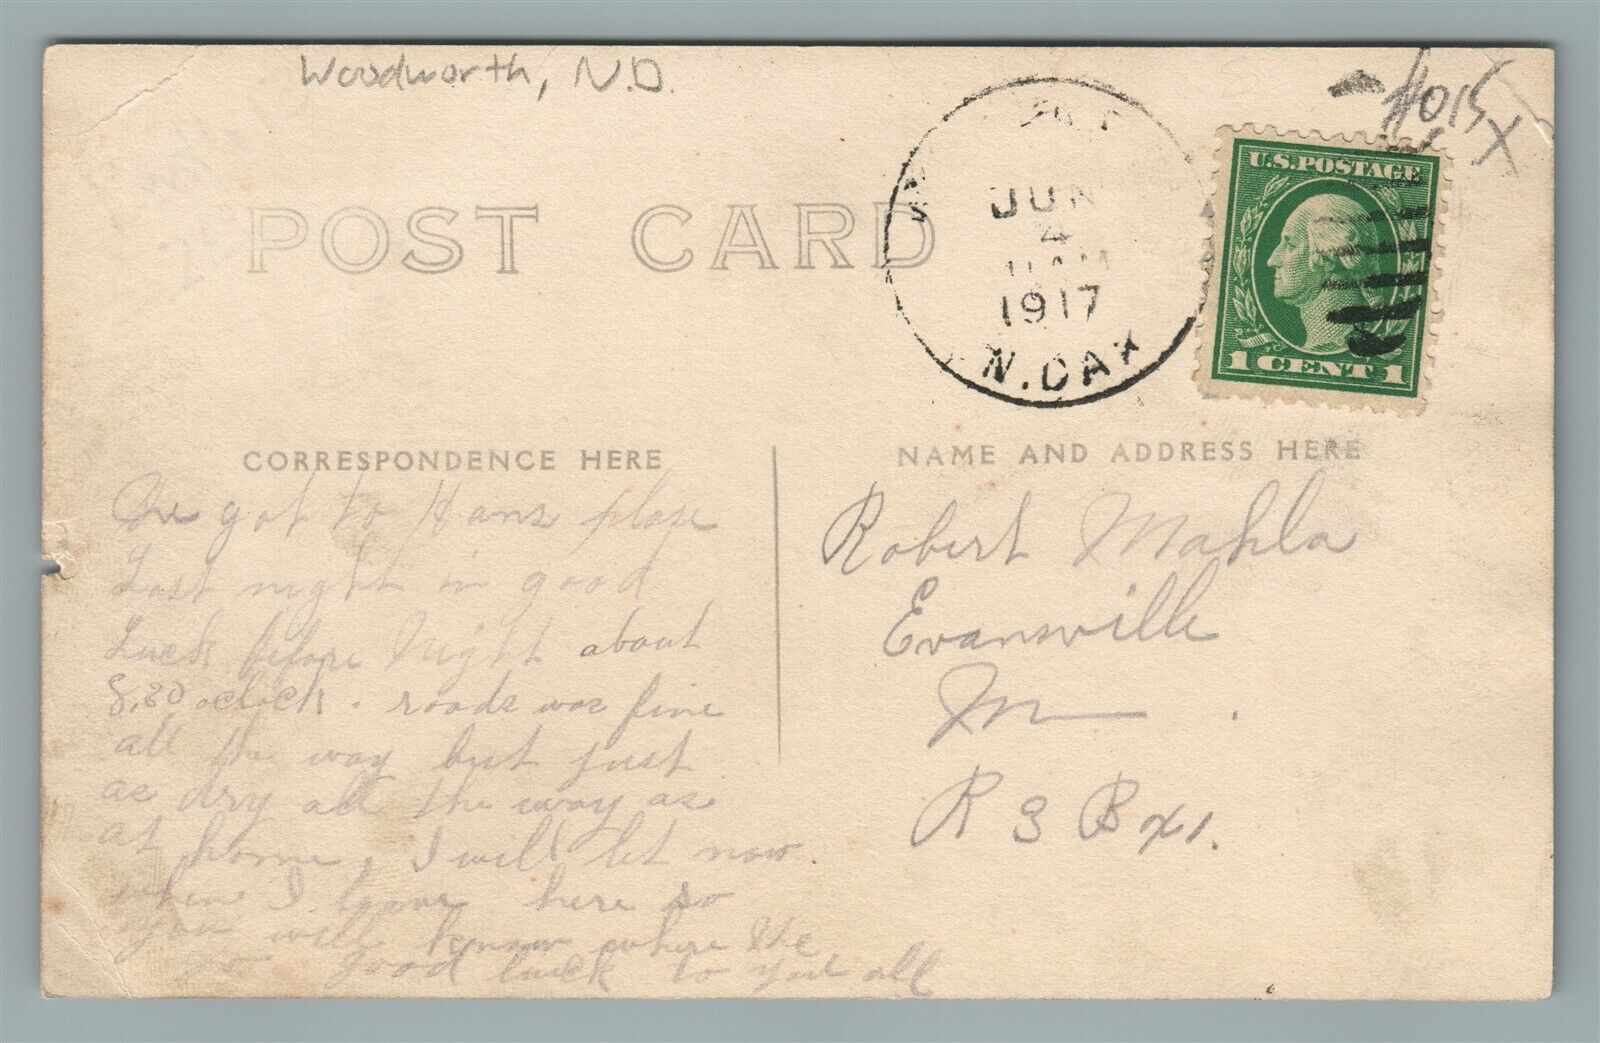 Woodworth, N.D.
POST CARD
JUN
4
11 AM
1917
N. DAK
U.S. POSTAGE
1 CENT 1
CORRESPONDENCE HERE
NAME AND ADDRESS HERE
We got to Hans place
Last night in good
Luck before Night about
8,30 oclock. roads was fine
all the way but just
as dry all the way as
at home, I will let now
when I leave here so
you will know where We
go good luck to you all
Robert Mahla
Evansville
R 3 Bx 1.